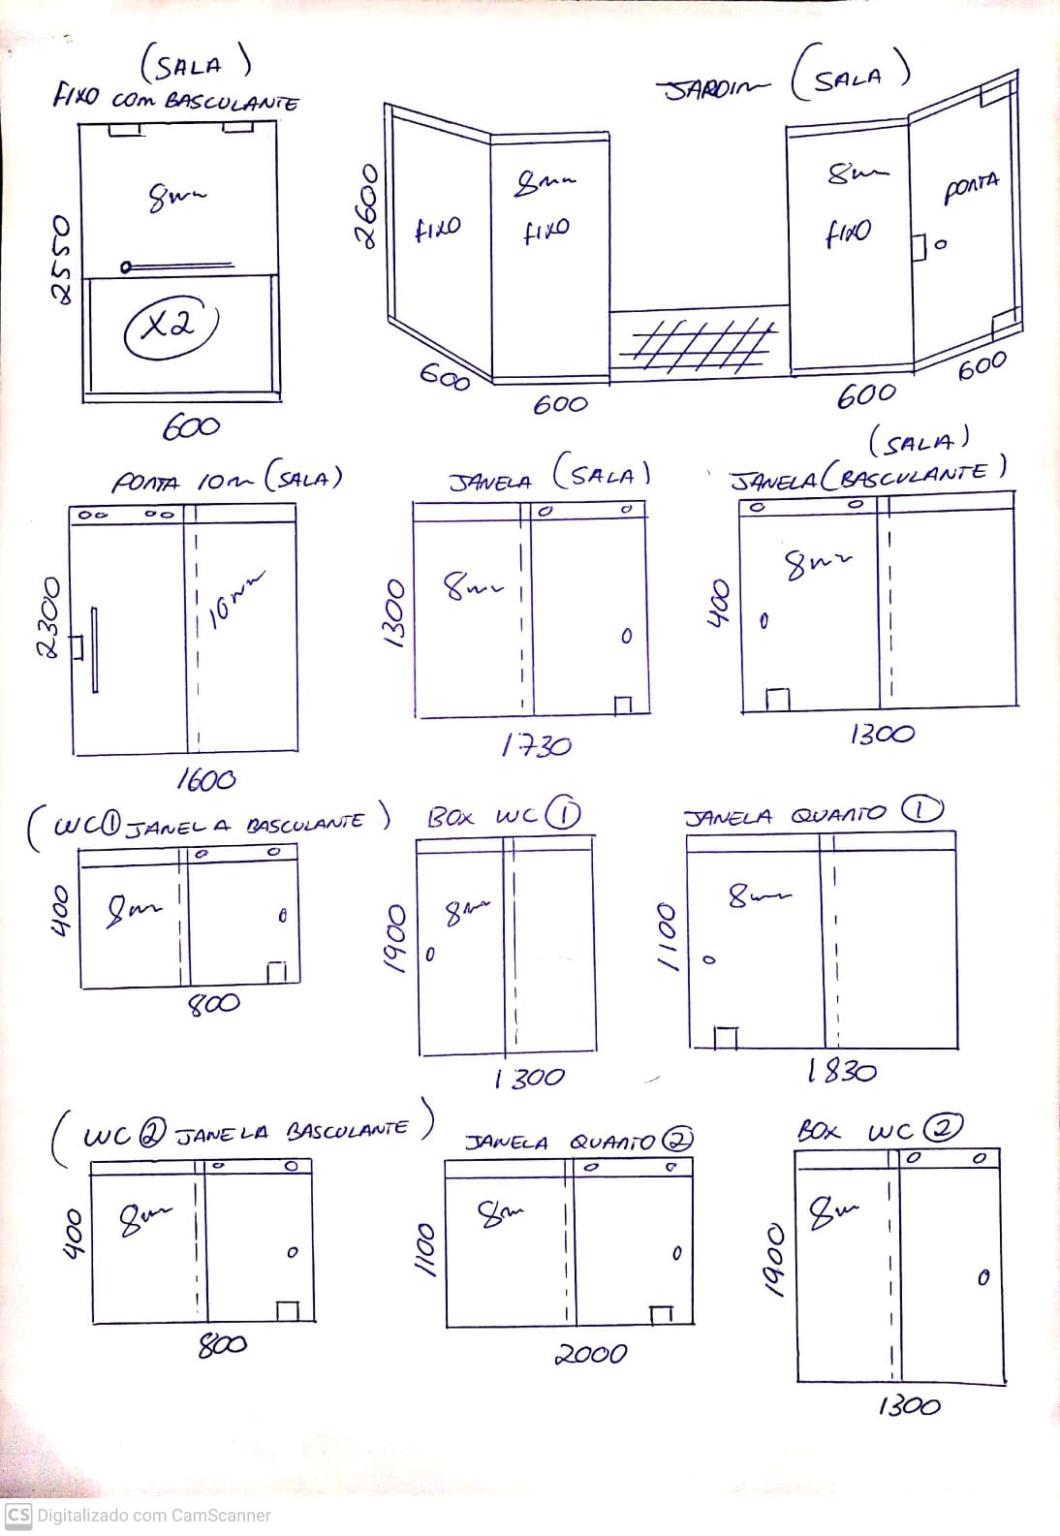 (SALA)
FIXO COM BASCULANTE
8mm
2550
X2
600
JARDIM (SALA)
2600
FIXO
8mm
FIXO
8mm
FIXO
PORTA
600
600
600
600
PORTA 10m (SALA)
2300
10mm
1600
JANELA (SALA)
1300
8mm
1730
(SALA)
JANELA (BASCULANTE)
400
8mm
1300
(WC 1 JANELA BASCULANTE)
400
8mm
800
BOX WC 1
1900
8mm
1300
JANELA QUARTO 1
1100
8mm
1830
(WC 2 JANELA BASCULANTE)
400
8mm
800
JANELA QUARTO 2
1100
8m
2000
BOX WC 2
1900
8m
1300
CS Digitalizado com CamScanner